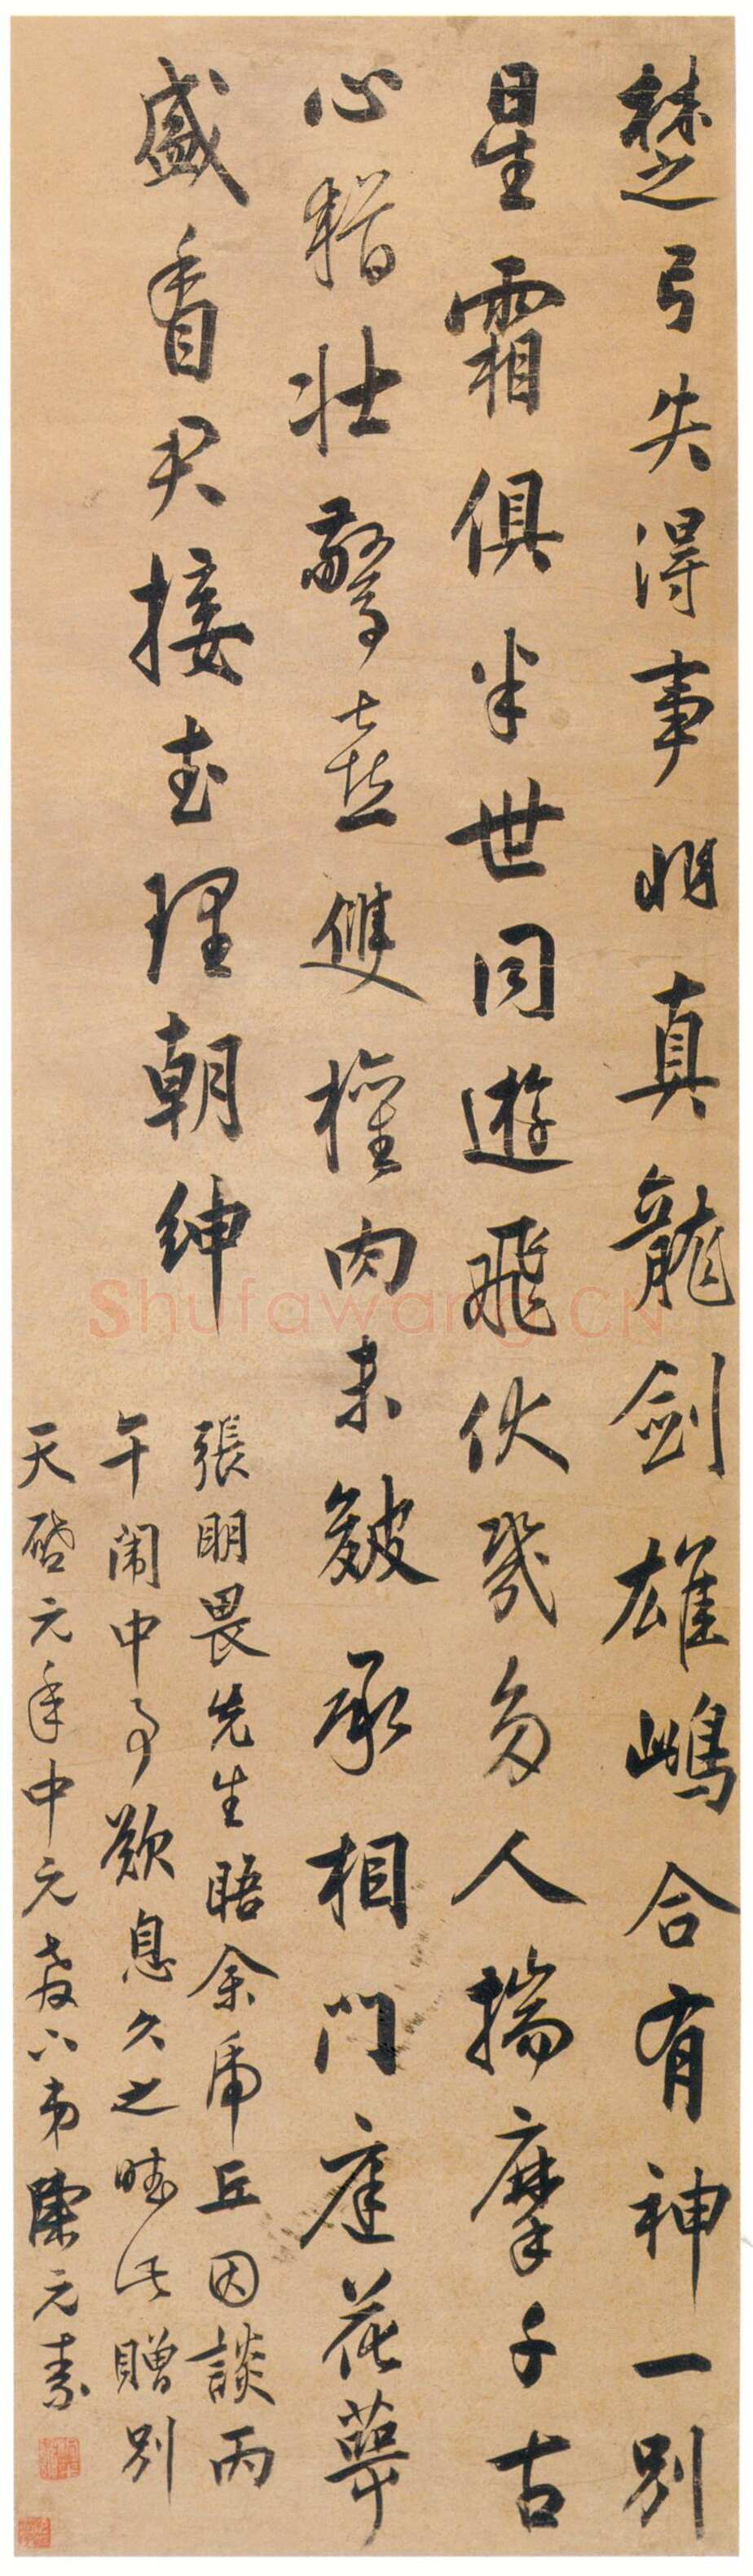 楚弓失得事非真龍劍雄鳴合有神一別
星霜俱半世同遊飛伏幾多人揣摩千古
心猶壯擊去雙權肉未皴承相門庭花萼
盛看君接武理朝紳
張明畏先生晤余虎丘因談丙
午闈中事歎息久之賦此贈別
天啓元年中元友六弟陳元素
Shufawang.CN